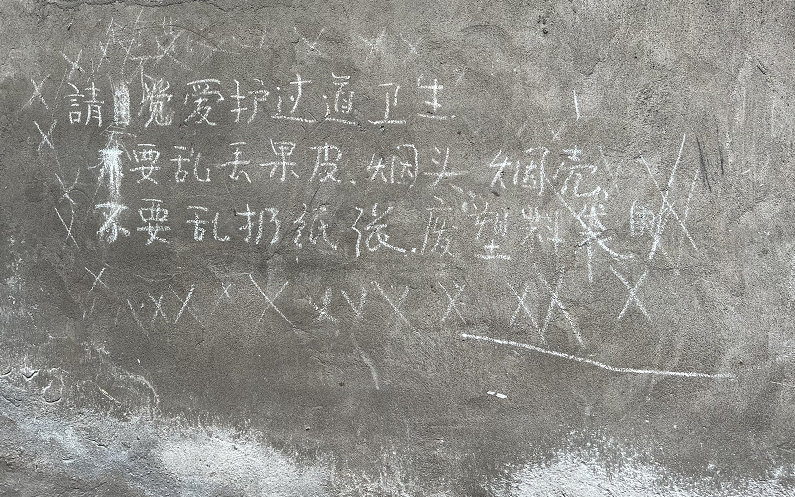 請自觉爱护过道卫生
不要乱丢果皮.烟头.烟壳,
不要乱扔纸张.废塑料袋